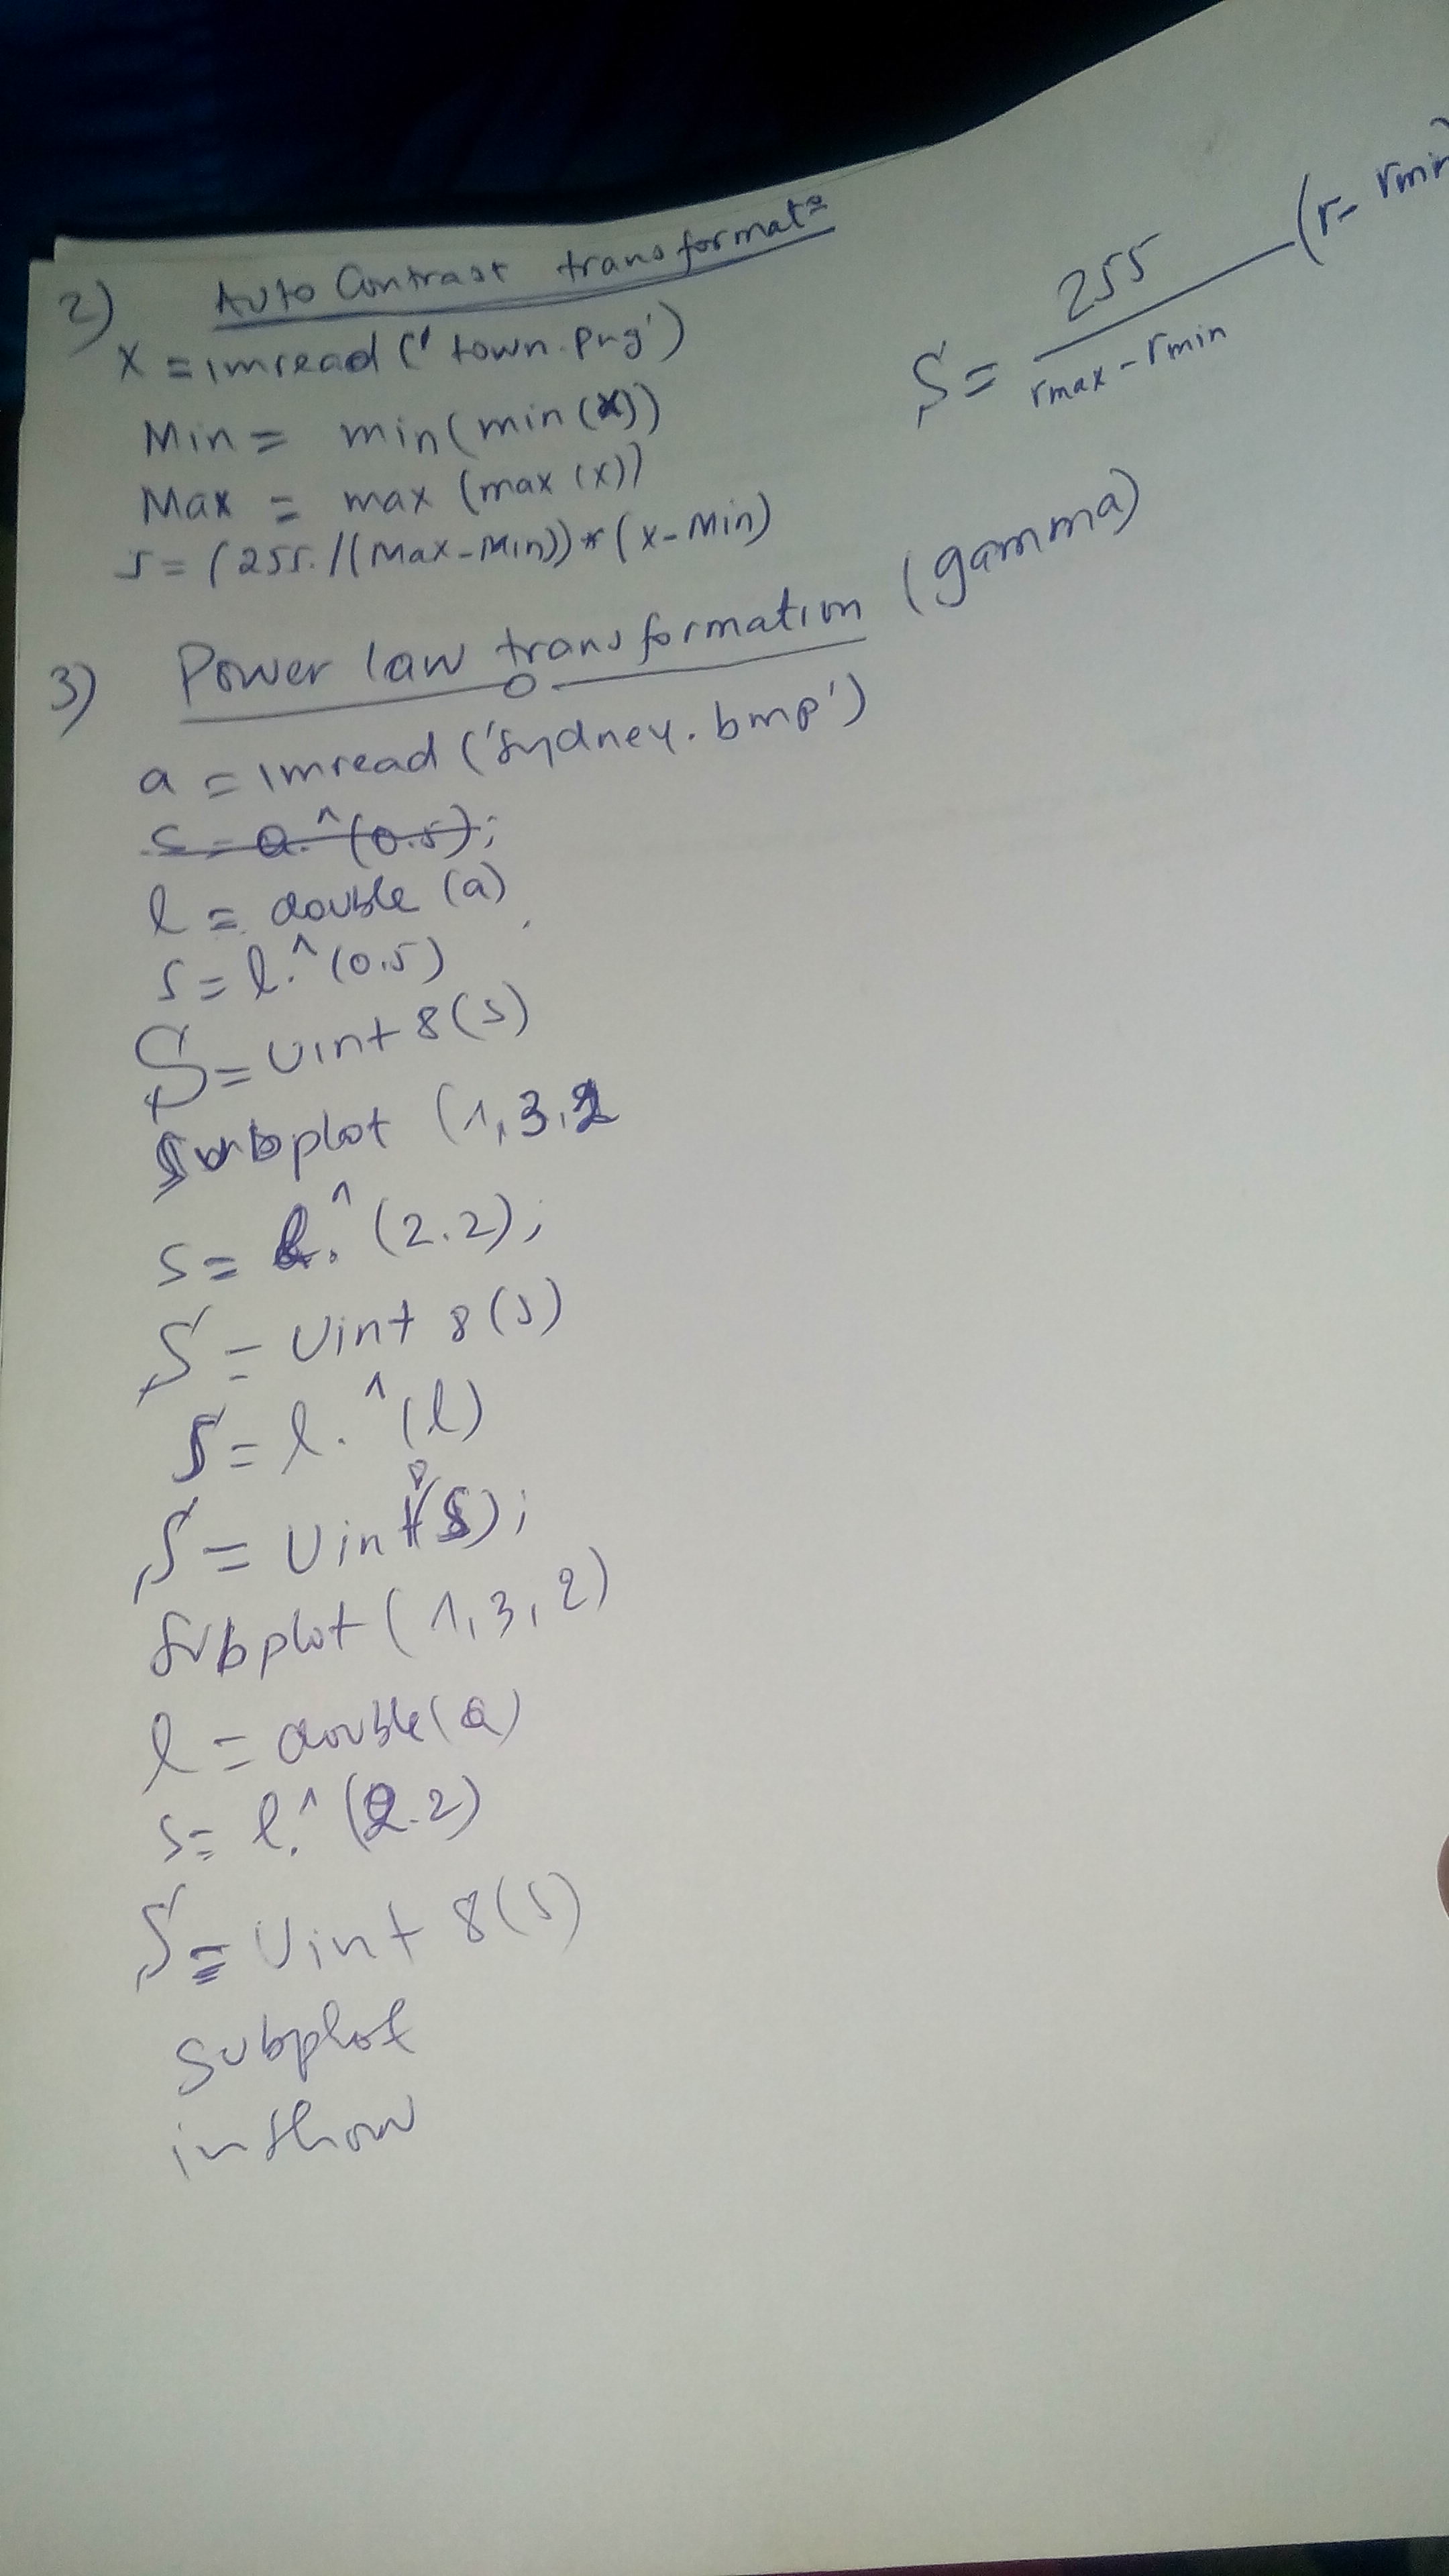 2) Auto Contrast transformat=
x = imread ('town.png')
Min = min(min(x))
Max = max (max (x))
s = (255./(Max-Min))*(x-Min)
S = 255 / rmax - rmin (r - rmin)
3) Power law transformation (gamma)
a = imread ('Sydney.bmp')
s = a.^(0.5);
l = double (a)
s = l.^(0.5)
S = Uint 8(s)
Subplot (1,3,2
s = l.^(2.2);
S = Uint 8(s)
S = l.^(l)
S = Uint8(S);
Subplot (1,3,2)
l = double(a)
s = l.^(2.2)
S = Uint 8(s)
Subplot
imshow